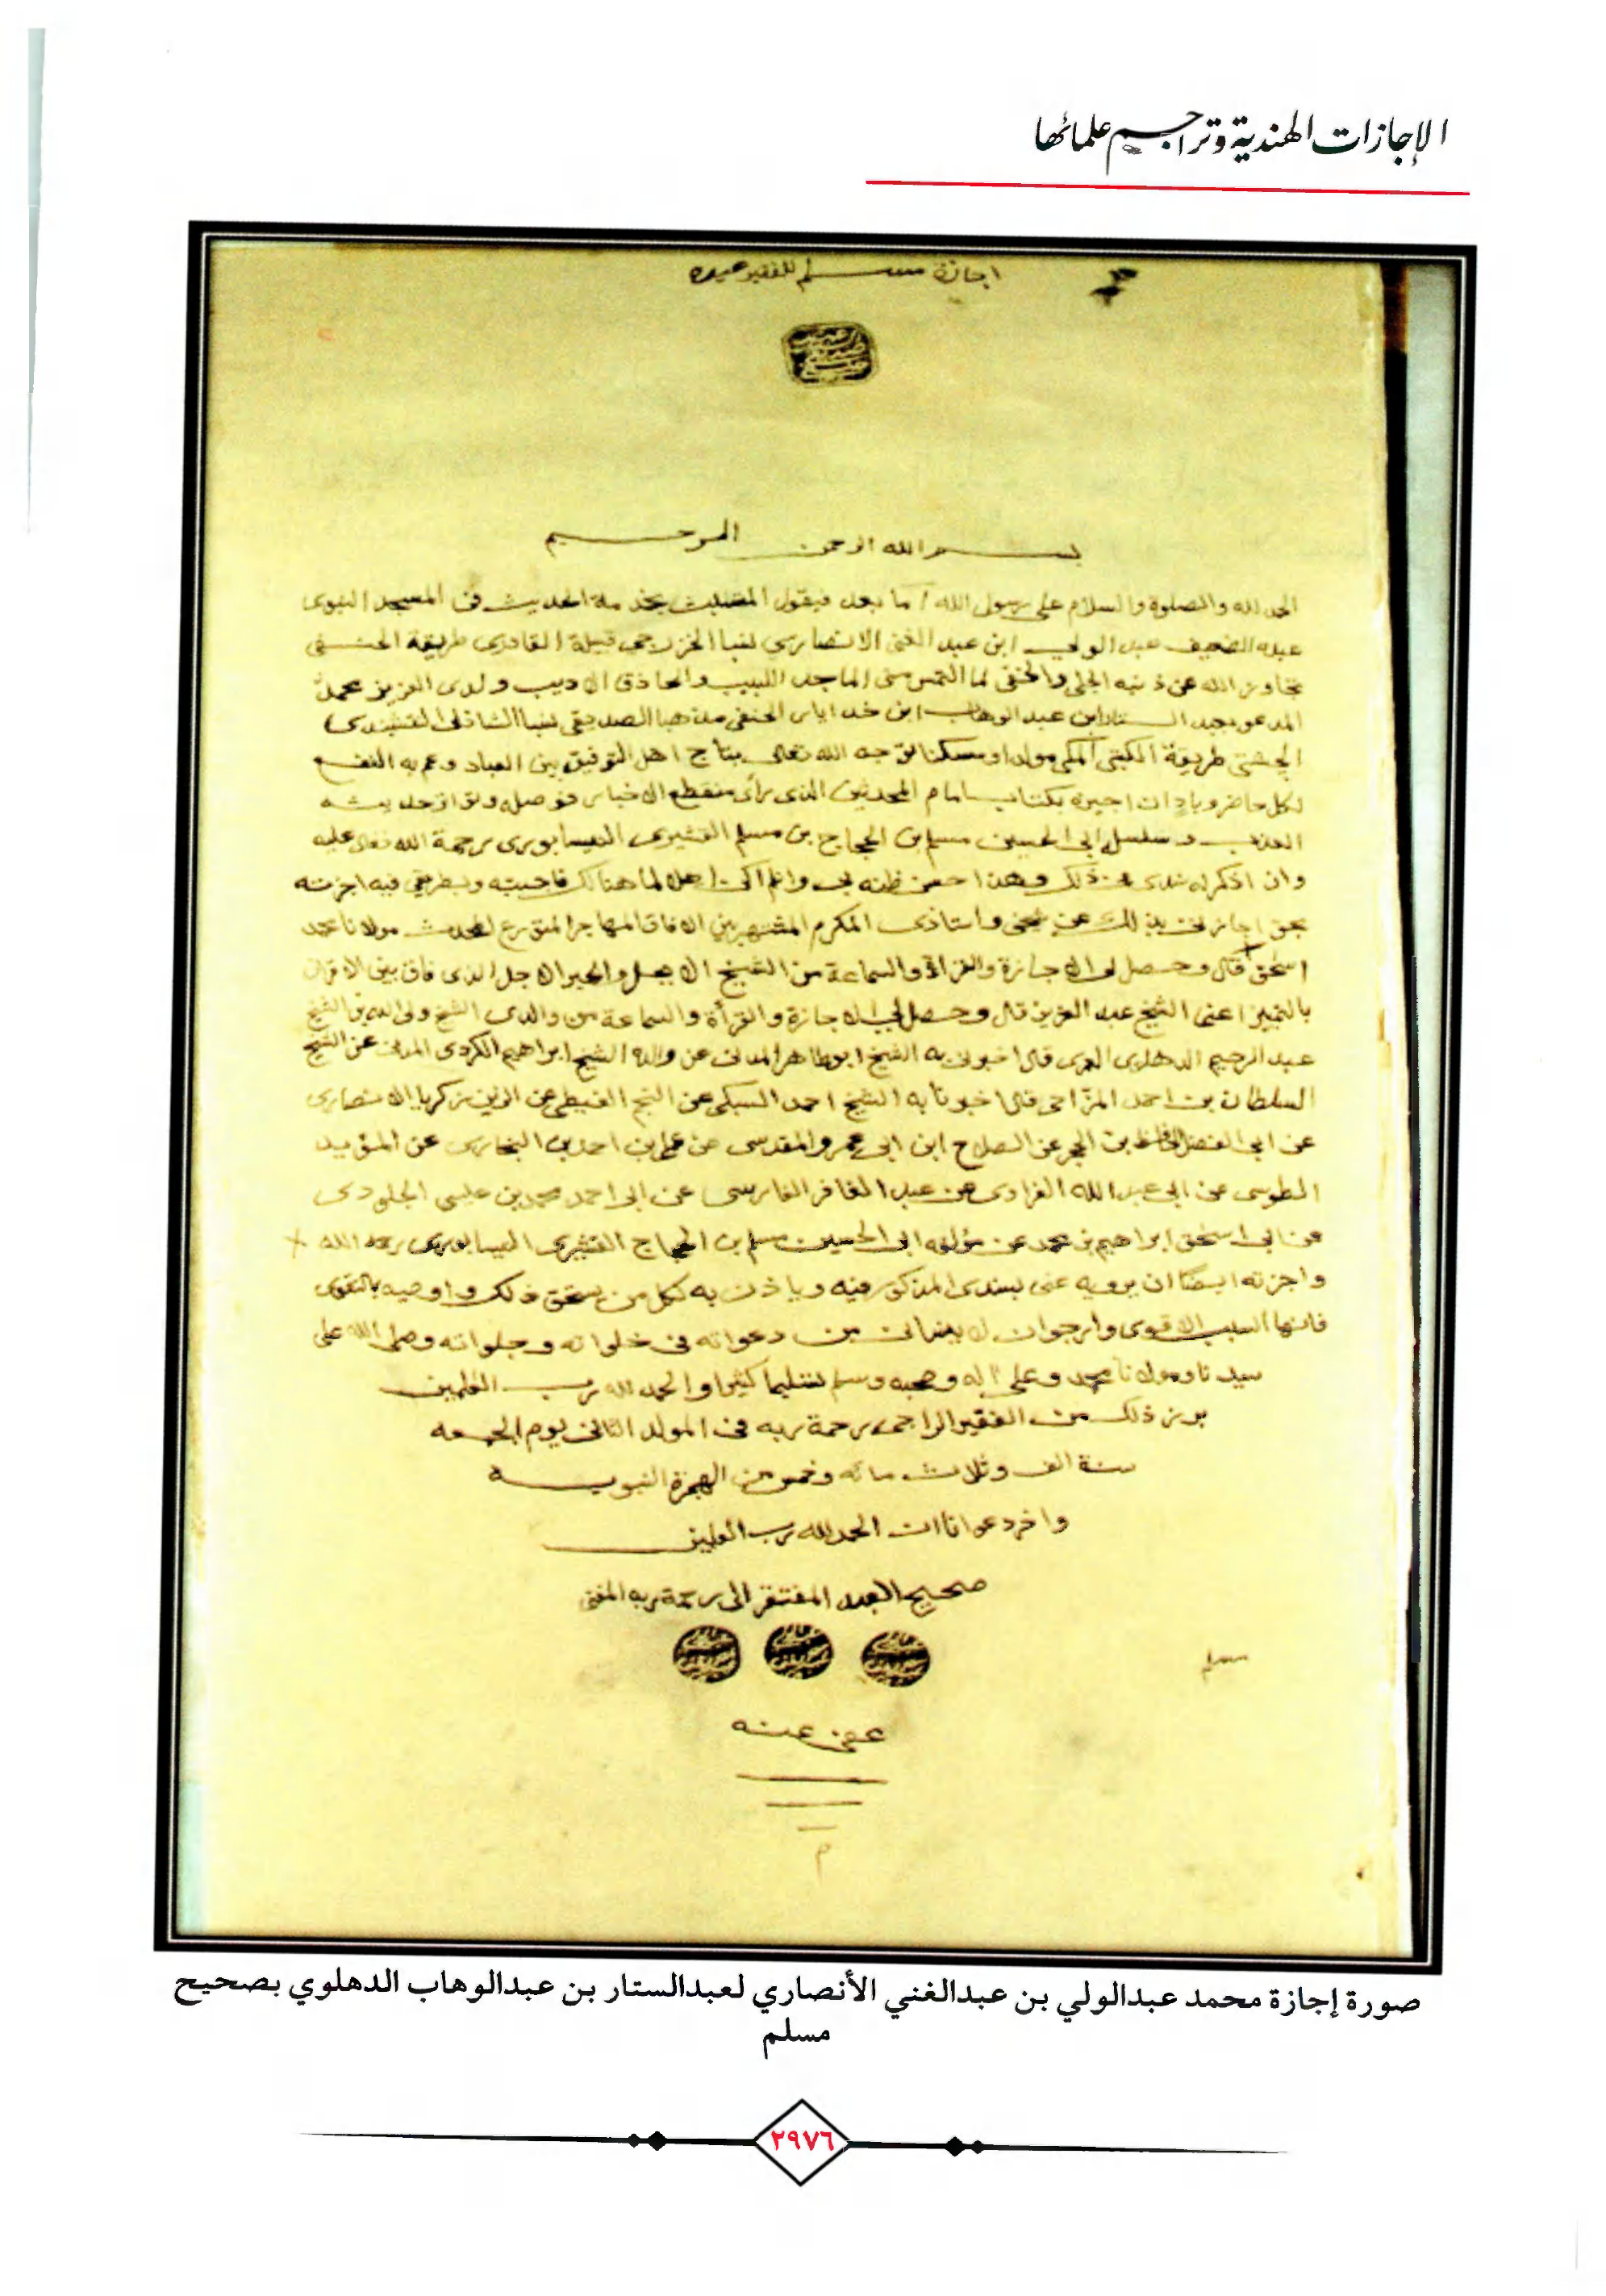 الإجازات الهندية وتراجم علمائها
اجازة مسلم للفقير
بسم الله الرحمن الرحيم
الحمد لله والصلوة والسلام على رسول الله اما بعد فيقول المتشبث بخدمة الحديث في المسجد النبوى
عبده الضعيف عبد الولي ابن عبد الغنى الانصاري نسبا الخزرجى قبيلة القادرى طريقة الحنفى
تجاوز الله عن ذنبه الجلى والخفى لما التمس منى الماجد اللبيب والحاذق الاديب ولدى العزيز محمد
المدعو بعبد الستار ابن عبد الوهاب ابن خدايار الحنفى مذهبا الصديقى نسبا الشاذلى النقشبندى
الچشتى طريقة الكتبى المكى مولدا ومسكنا توجه الله تعالى بتاج اهل التوفيق بين العباد وعم به النفع
لكل حاضر وباد ان اجيزه بكتاب امام المحدثين الذى رأى منقطع الاخبار فوصله وتواتر حديثه
العذب وسلسل ابى الحسين مسلم بن الحجاج بن مسلم القشيرى النيسابورى رحمة الله تعالى عليه
وان اذكر له سندى عن ذلك وهذا احسن ظنه بى وانلم اكن اهلا لما هنالك فاجبته وبطريقى فيه اجزته
بحق اجازتى بذلك عن شيخى واستاذى المكرم المشتهر بين الافاق المهاجر المتورع المحدث مولانا محمد
اسحٰق قال وحصل لى الاجازة والقراءة والسماعة من الشيخ الابجل والحبر الاجل الذى فاق بين الاقران
بالتميز اعنى الشيخ عبد العزيز قال وحصل لى الاجازة والقرأة والسماعة من والدى الشيخ ولى الله بن الشيخ
عبد الرحيم الدهلوى العمرى قال اخبرنى به الشيخ ابو طاهر المدنى عن والده الشيخ ابراهيم الكردى المدنى عن الشيخ
السلطان بن احمد المزّاحى قال اخبرنا به الشيخ احمد السبكى عن النجم الغيطى عن الزين زكريا الانصارى
عن ابى الفضل الحافظ بن الحجر عن الصلاح ابن ابى عمرو المقدسى عن على بن احمد بن البخارى عن المؤيد
الطوسى عن ابى عبد الله الفراوى عن عبد الغافر الفارسى عن ابى احمد محمد بن عيسى الجلودى
عن ابى اسحٰق ابراهيم بن محمد عن مؤلفه ابى الحسين مسلم بن الحجاج القشيرى النيسابورى رحمه الله
واجزته ايضاً ان يرويه عنى بسندى المذكور فيه وياذن به لكل من يستحق ذلك واوصيه بالتقوى
فانها السبب الاقوى وارجو ان لا ينسانى من دعواته فى خلواته وجلواته وصلى الله على
سيدنا ومولانا محمد وعلى آله وصحبه وسلم تسليما كثيرا والحمد لله رب العٰلمين
برز ذلك من الفقير الراجى رحمة ربه فى المولد الثانى يوم الجمعه
سنة الف وثلاث مائه وخمس من الهجرة النبويه
واخر دعوانا ان الحمد لله رب العٰلمين
صحيح العبد المفتقر الى رحمة ربه المغنى
مسلم
عفى عنه
م
صورة إجازة محمد عبدالولي بن عبدالغني الأنصاري لعبدالستار بن عبدالوهاب الدهلوي بصحيح
مسلم
٢٩٧٦